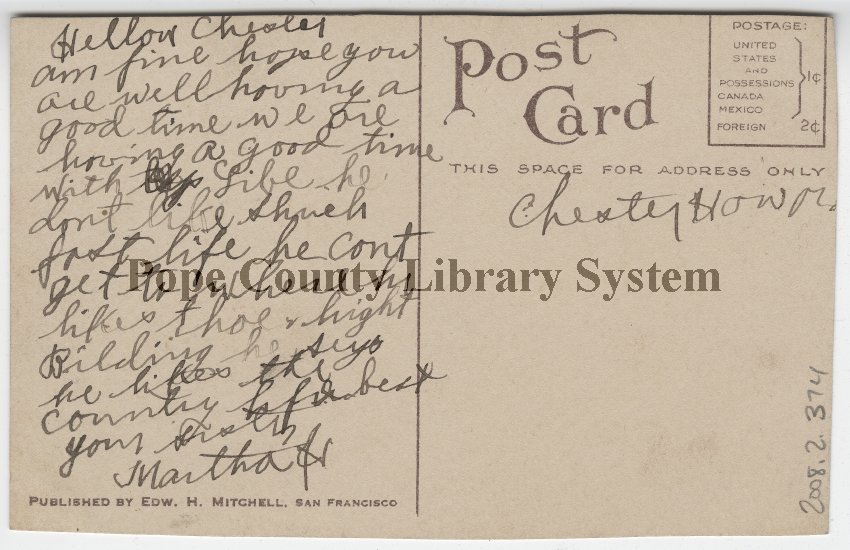 Hellow Chester
am fine hope you
are well hoving a
good time we are
hoving a good time
with Sibe he
don't like shuch
fast life he cont
get to where he
likes thoe hight
Bilding he seys
he likes the
country life best
your Sister
Martha
PUBLISHED BY EDW. H. MITCHELL, SAN FRANCISCO
Post
Card
POSTAGE:
UNITED
STATES
AND
POSSESSIONS
CANADA
MEXICO
1¢
FOREIGN 2¢
THIS SPACE FOR ADDRESS ONLY
Chester
Pope County Library System
2008.2.374